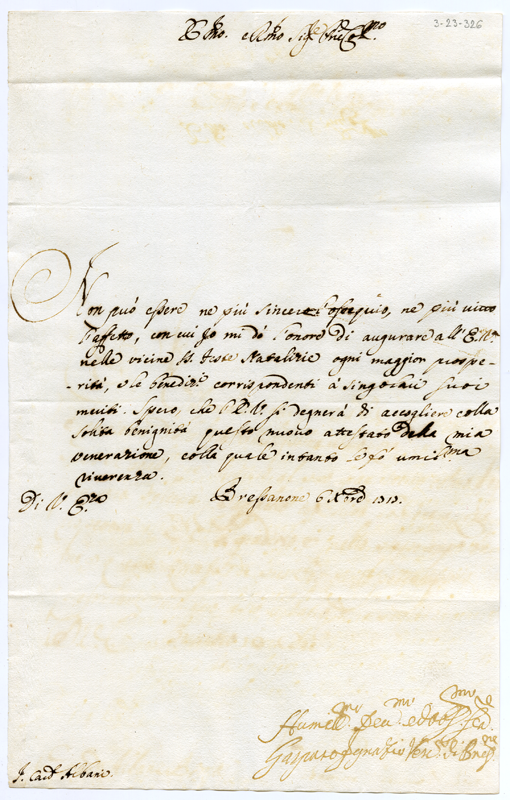 3-23-326
Non può essere ne più sincero l'ossequio, ne più vivo
l'affetto, con cui Jo mi dò l'onore di augurare all' E. V.ra
nelle vicine SS. feste Natalizie ogni maggior prospe-
rità, e le benediz.i corrispondenti à singolari suoi
meriti. Spero, che l'E. V. si degnerà di accogliere colla
solita benignità questo nuovo attestato della mia
venerazione, colla quale intanto le fò umiliss.ma
riverenza.
Di V. E.
Bressanone 6 Xbre
Gasparo Ignazio Ves. di Bres.ne
S. Card. Albani.